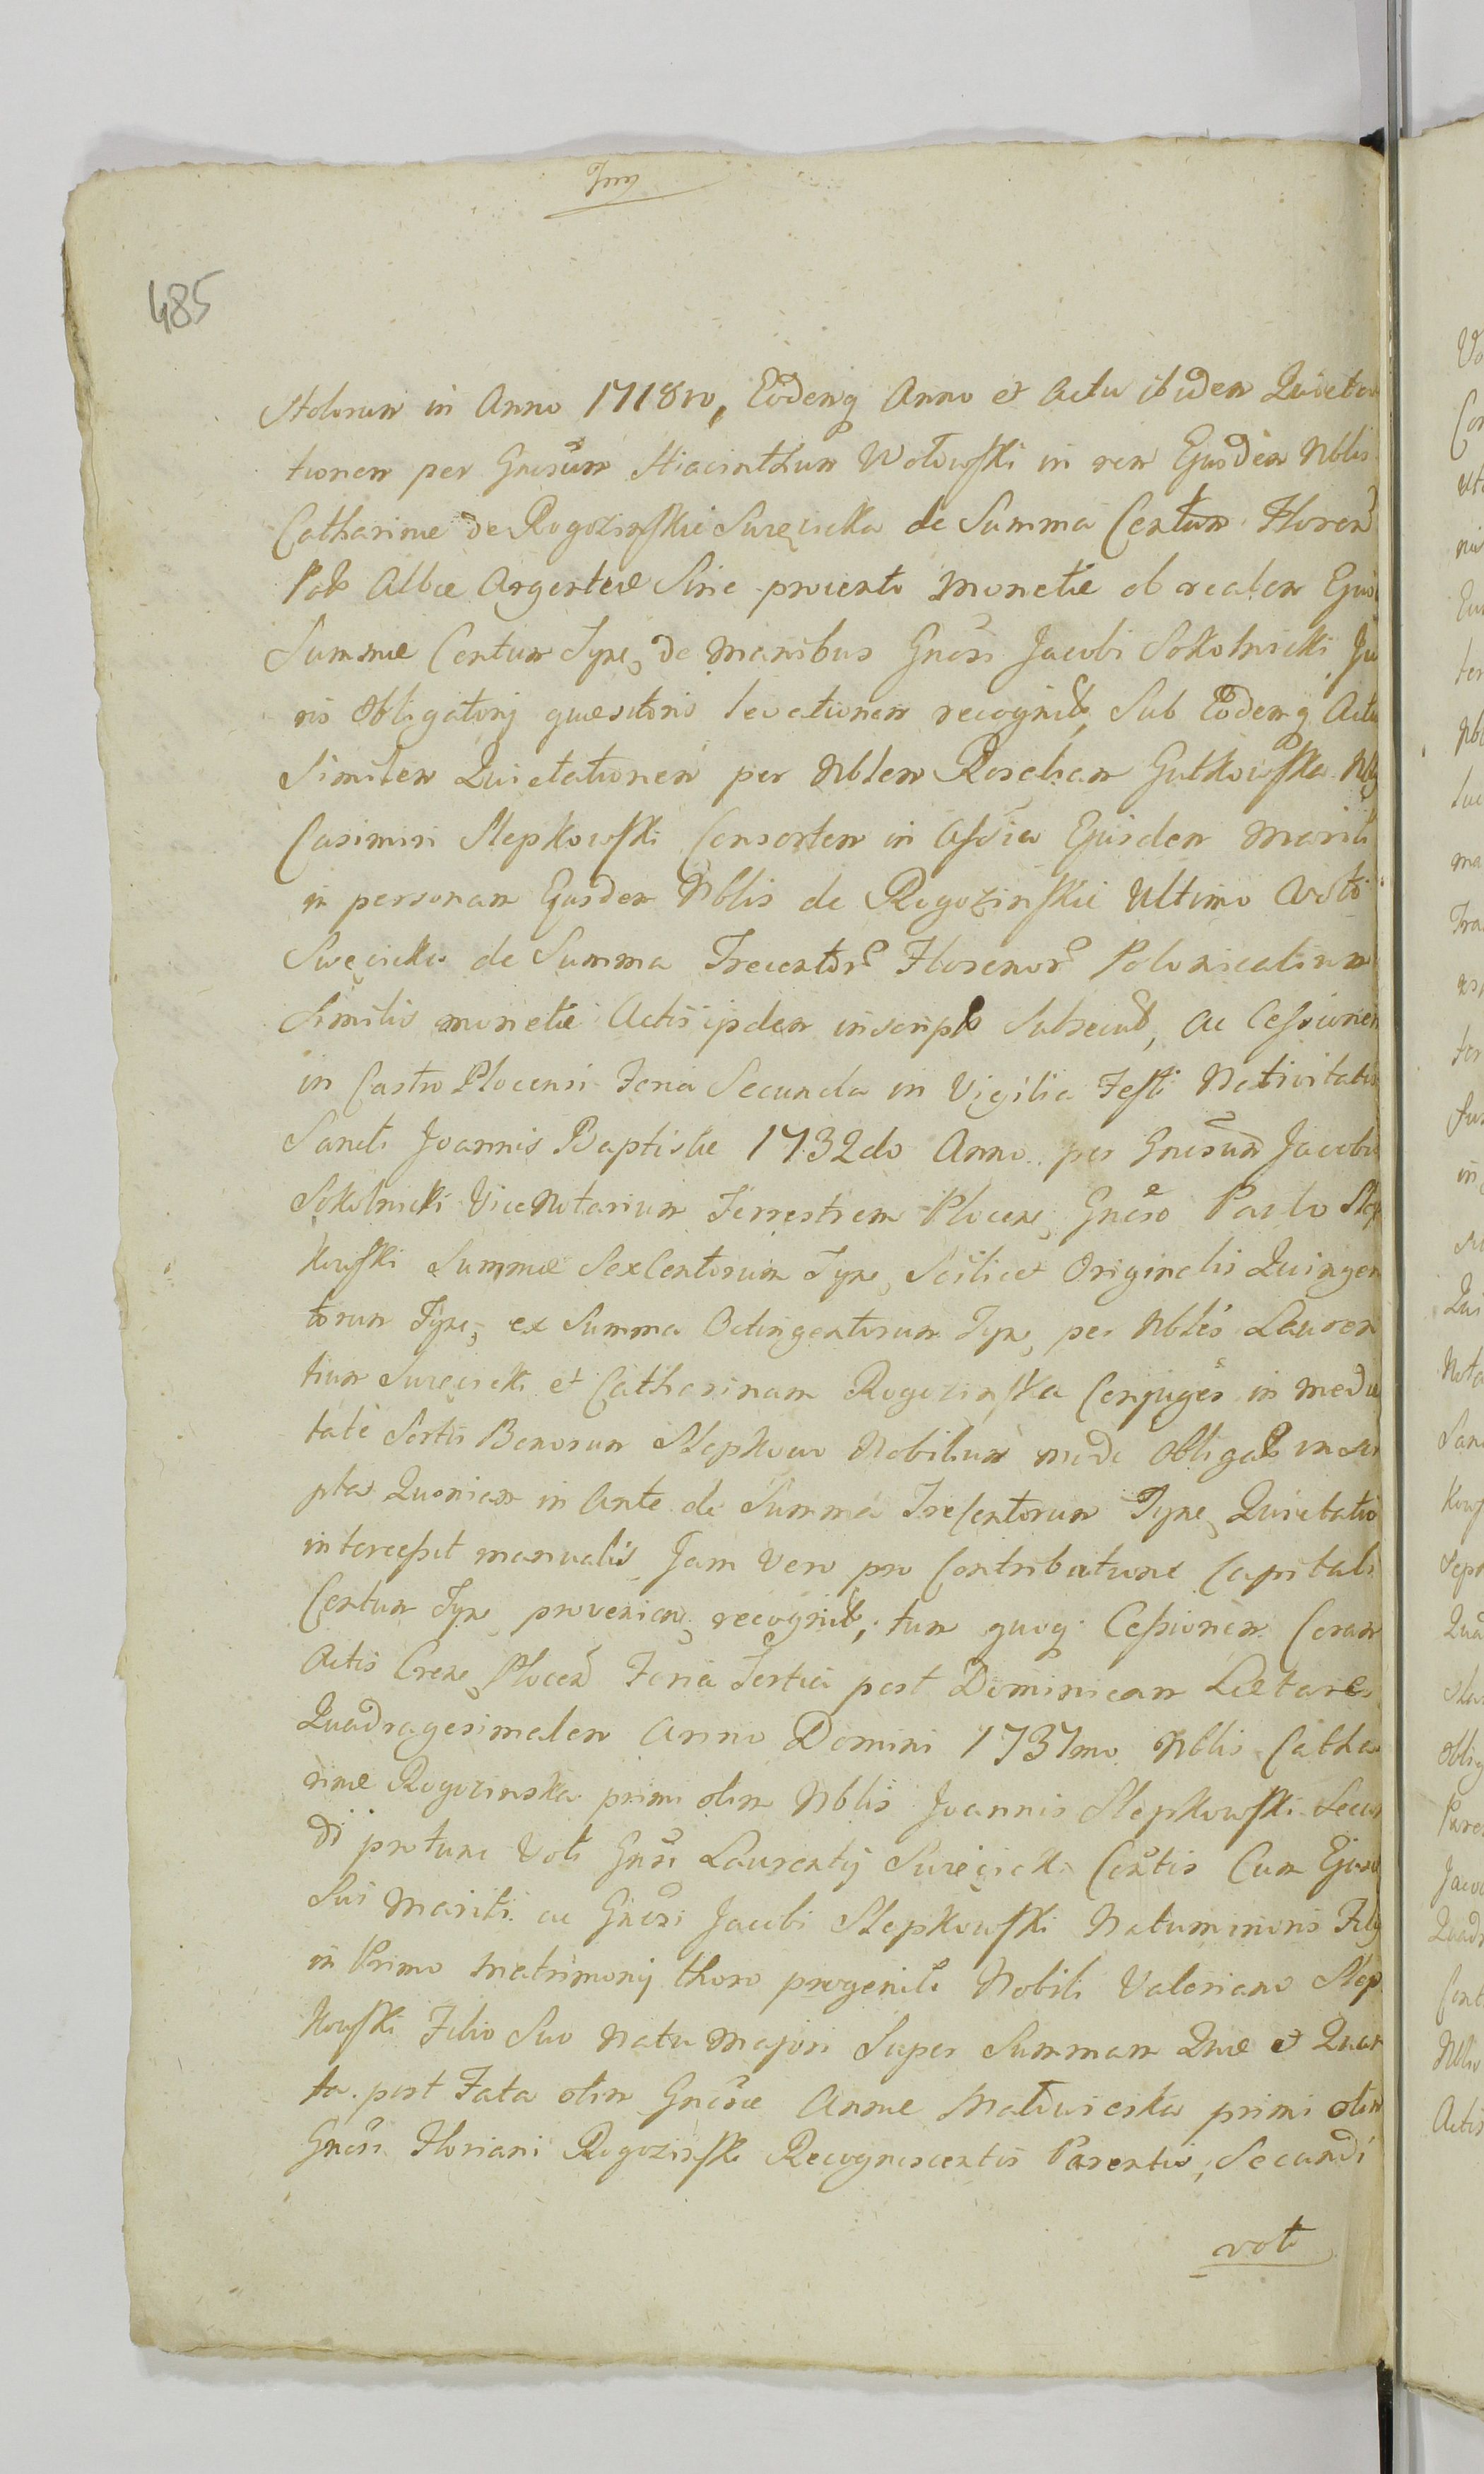 485
Stolorum in Anno 1718vo, Eodemq Anno et Actu ibidem Quieta
tionem per Gnosum Hiacinthum Wołowski in rem Ejusdem Nblis
Catharinæ de Rogozinskie Swięcicka de Summa Centum Floren
Pol Albæ Argenteæ Sine provento Monetæ ob realem Ejus
Summæ Centum Type, de Manibus Gnosi Jacobi Sokolnicki Ju
ris Obligatorij quæsitoris levationem recognit, Sub Eodemq Actu
Similem Quietationem per Nblem Rosaliam Gutkowska Nblg
Casimiri Slepkowski Consortem in Assia Ejusdem Mariti
in personam Ejusdem Nblis de Rogozinskie Ultimo Voto
Swięcicka de Summa Trecentor Florenor Polonicalium
Similis monetæ Actis ipdem inscript Subsecut, ac Cessionem
in Castro Plocensi Feria Secunda in Vigilia Festi Nativitatis
Sancti Joannis Baptistæ 1732do Anno per Gnosum Jacobu
Sokolnicki ViceNotarium Terrestrem Plocen, Gnoso Paulo Slep
kowski Summæ Sexcentorum Type, Scilicet Originalis Quingen
torum Type, ex Summa Octingentorum Type, per Nbles Lauren
tium Swięcicki et Catharinam Rogozinska Conjuges in medie
tate Sortis Bonorum Slepkowo Nobilium modo Obligat inscri
pta Quoniam in Ante de Summa Trecentorum Type, Quietatio
intercessit manualis, Jam Vero pro Contributione Capitali
Centum Type provenien, recognit, tum quoq Cessionem Coram
Actis Cren, Plocen Feria Tertia post Dominicam Lætare
Quadragesimalem Anno Domini 1737mo Nblis Catha
rinæ Rogozinska primi olim Nblis Joannis Slepkowski Secun
di protunc Voti Gnosi Laurentij Swięcicki Contis Cum Ejusd
Sui Mariti ac Gnosi Jacobi Slepkowski Natuminoris Filij
in Primo Matrimonij thoro progeniti Nobili Valeriano Slep
kowski Filio Suo Natu Majori Super Summam Quæ et Quan
ta post Fata olim Gnosæ Annæ Małowieska primi olim
Gnosi Floriani Rogozinski Recognoscentis Parentis, Secundi
voti